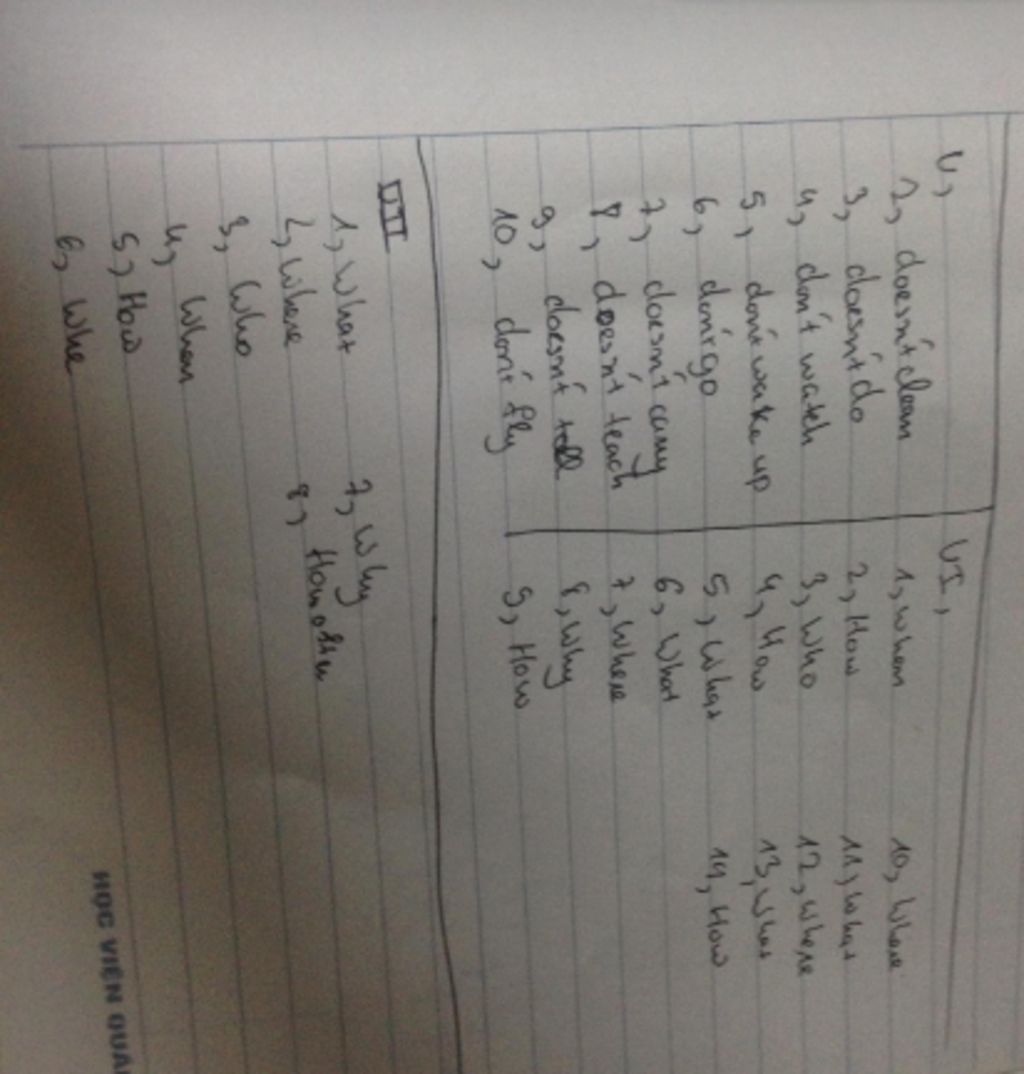 V,
2, doesn't clean
3, doesn't do
4, don't watch
5, don't wake up
6, don't go
7, doesn't carry
8, doesn't teach
9, doesn't tell
10, don't fly
VI,
1, When
2, How
3, Who
4, How
5, What
6, What
7, Where
8, Why
9, How
10, Where
11, What
12, Where
13, What
14, How
VII
1, What
2, Where
3, Who
4, When
5, How
6, Whe
7, Why
8, How often
HỌC VIỆN QUÂ